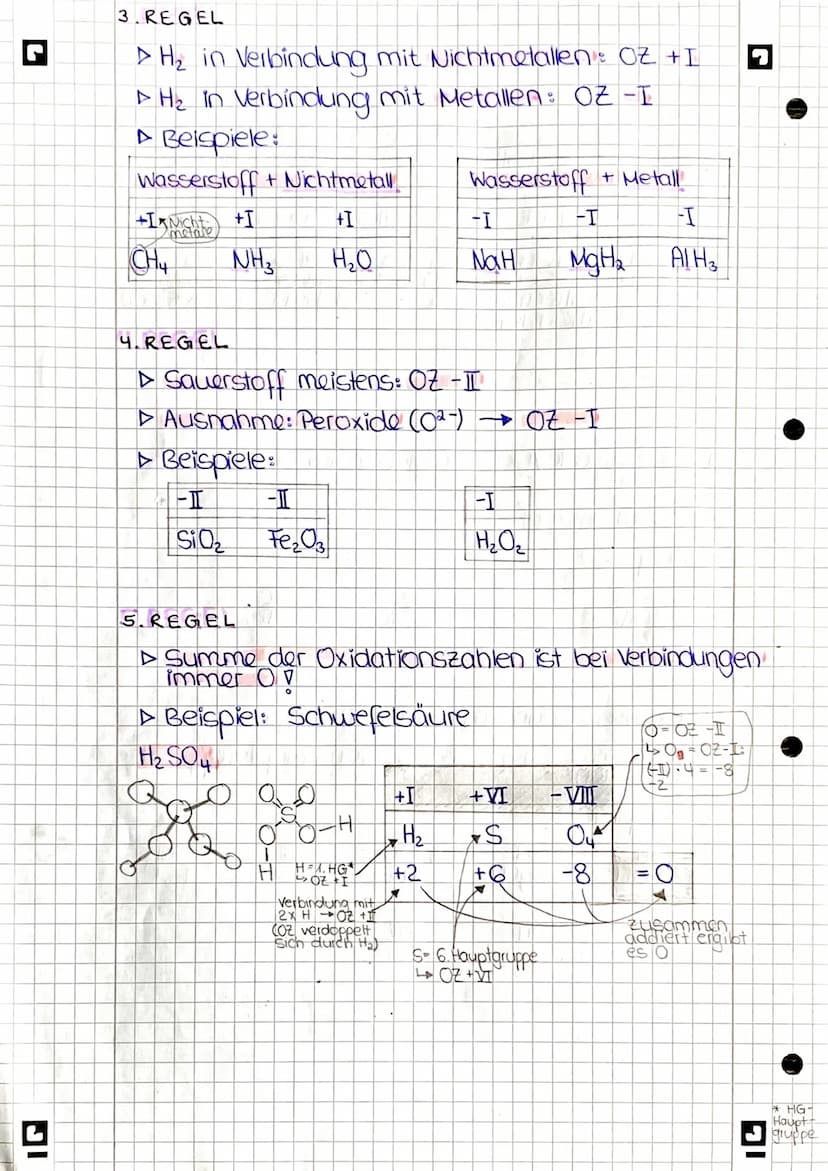 3. REGEL
▷ H₂ in Verbindung mit Nichtmetallen: OZ +I
▷ H₂ in Verbindung mit Metallen: OZ -I
▷ Beispiele:
Wasserstoff + Nichtmetall
+I Nicht- +I +I
metalle
CH₄ NH₃ H₂O
Wasserstoff + Metall
-I -I -I
NaH MgH₂ AlH₃
4. REGEL
▷ Sauerstoff meistens: OZ -II
▷ Ausnahme: Peroxide (O²⁻) → OZ -I
▷ Beispiele:
-II -II
SiO₂ Fe₂O₃
-I
H₂O₂
5. REGEL
▷ Summe der Oxidationszahlen ist bei Verbindungen
immer 0!
▷ Beispiel: Schwefelsäure
H₂SO₄
O= OZ -II
↳ O₉ = OZ-I:
(-I)·4 = -8
-2
O O
S
O O-H
H
+I +VI -VIII
H₂ S O₄
+2 +6 -8 = 0
H=1.HG*
↳ OZ +I
Verbindung mit
2x H → OZ +II
(OZ verdoppelt
sich durch H₂)
S= 6. Hauptgruppe
↳ OZ +VI
zusammen
addiert ergibt
es 0
* HG-
Haupt-
gruppe